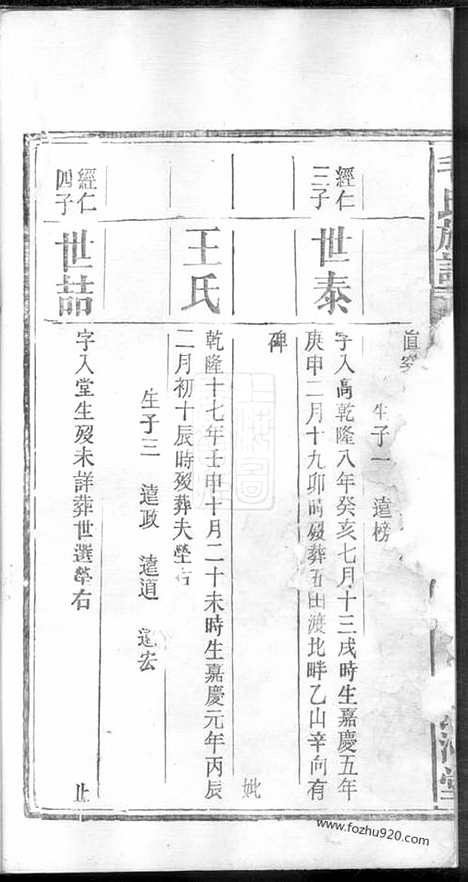 毛氏族譜
生子一　遠榜
經仁三子
世泰
字入高乾隆八年癸亥七月十三戌時生嘉慶五年
庚申二月十九卯時歿葬石田渡北畔乙山辛向有
碑
妣
王氏
乾隆十七年壬申十月二十未時生嘉慶元年丙辰
二月初十辰時歿葬夫塋右
生子三　遠政　遠道　遠宏
經仁四子
世喆
字入堂生歿未詳葬世選塋右
止
www.fozhu920.com